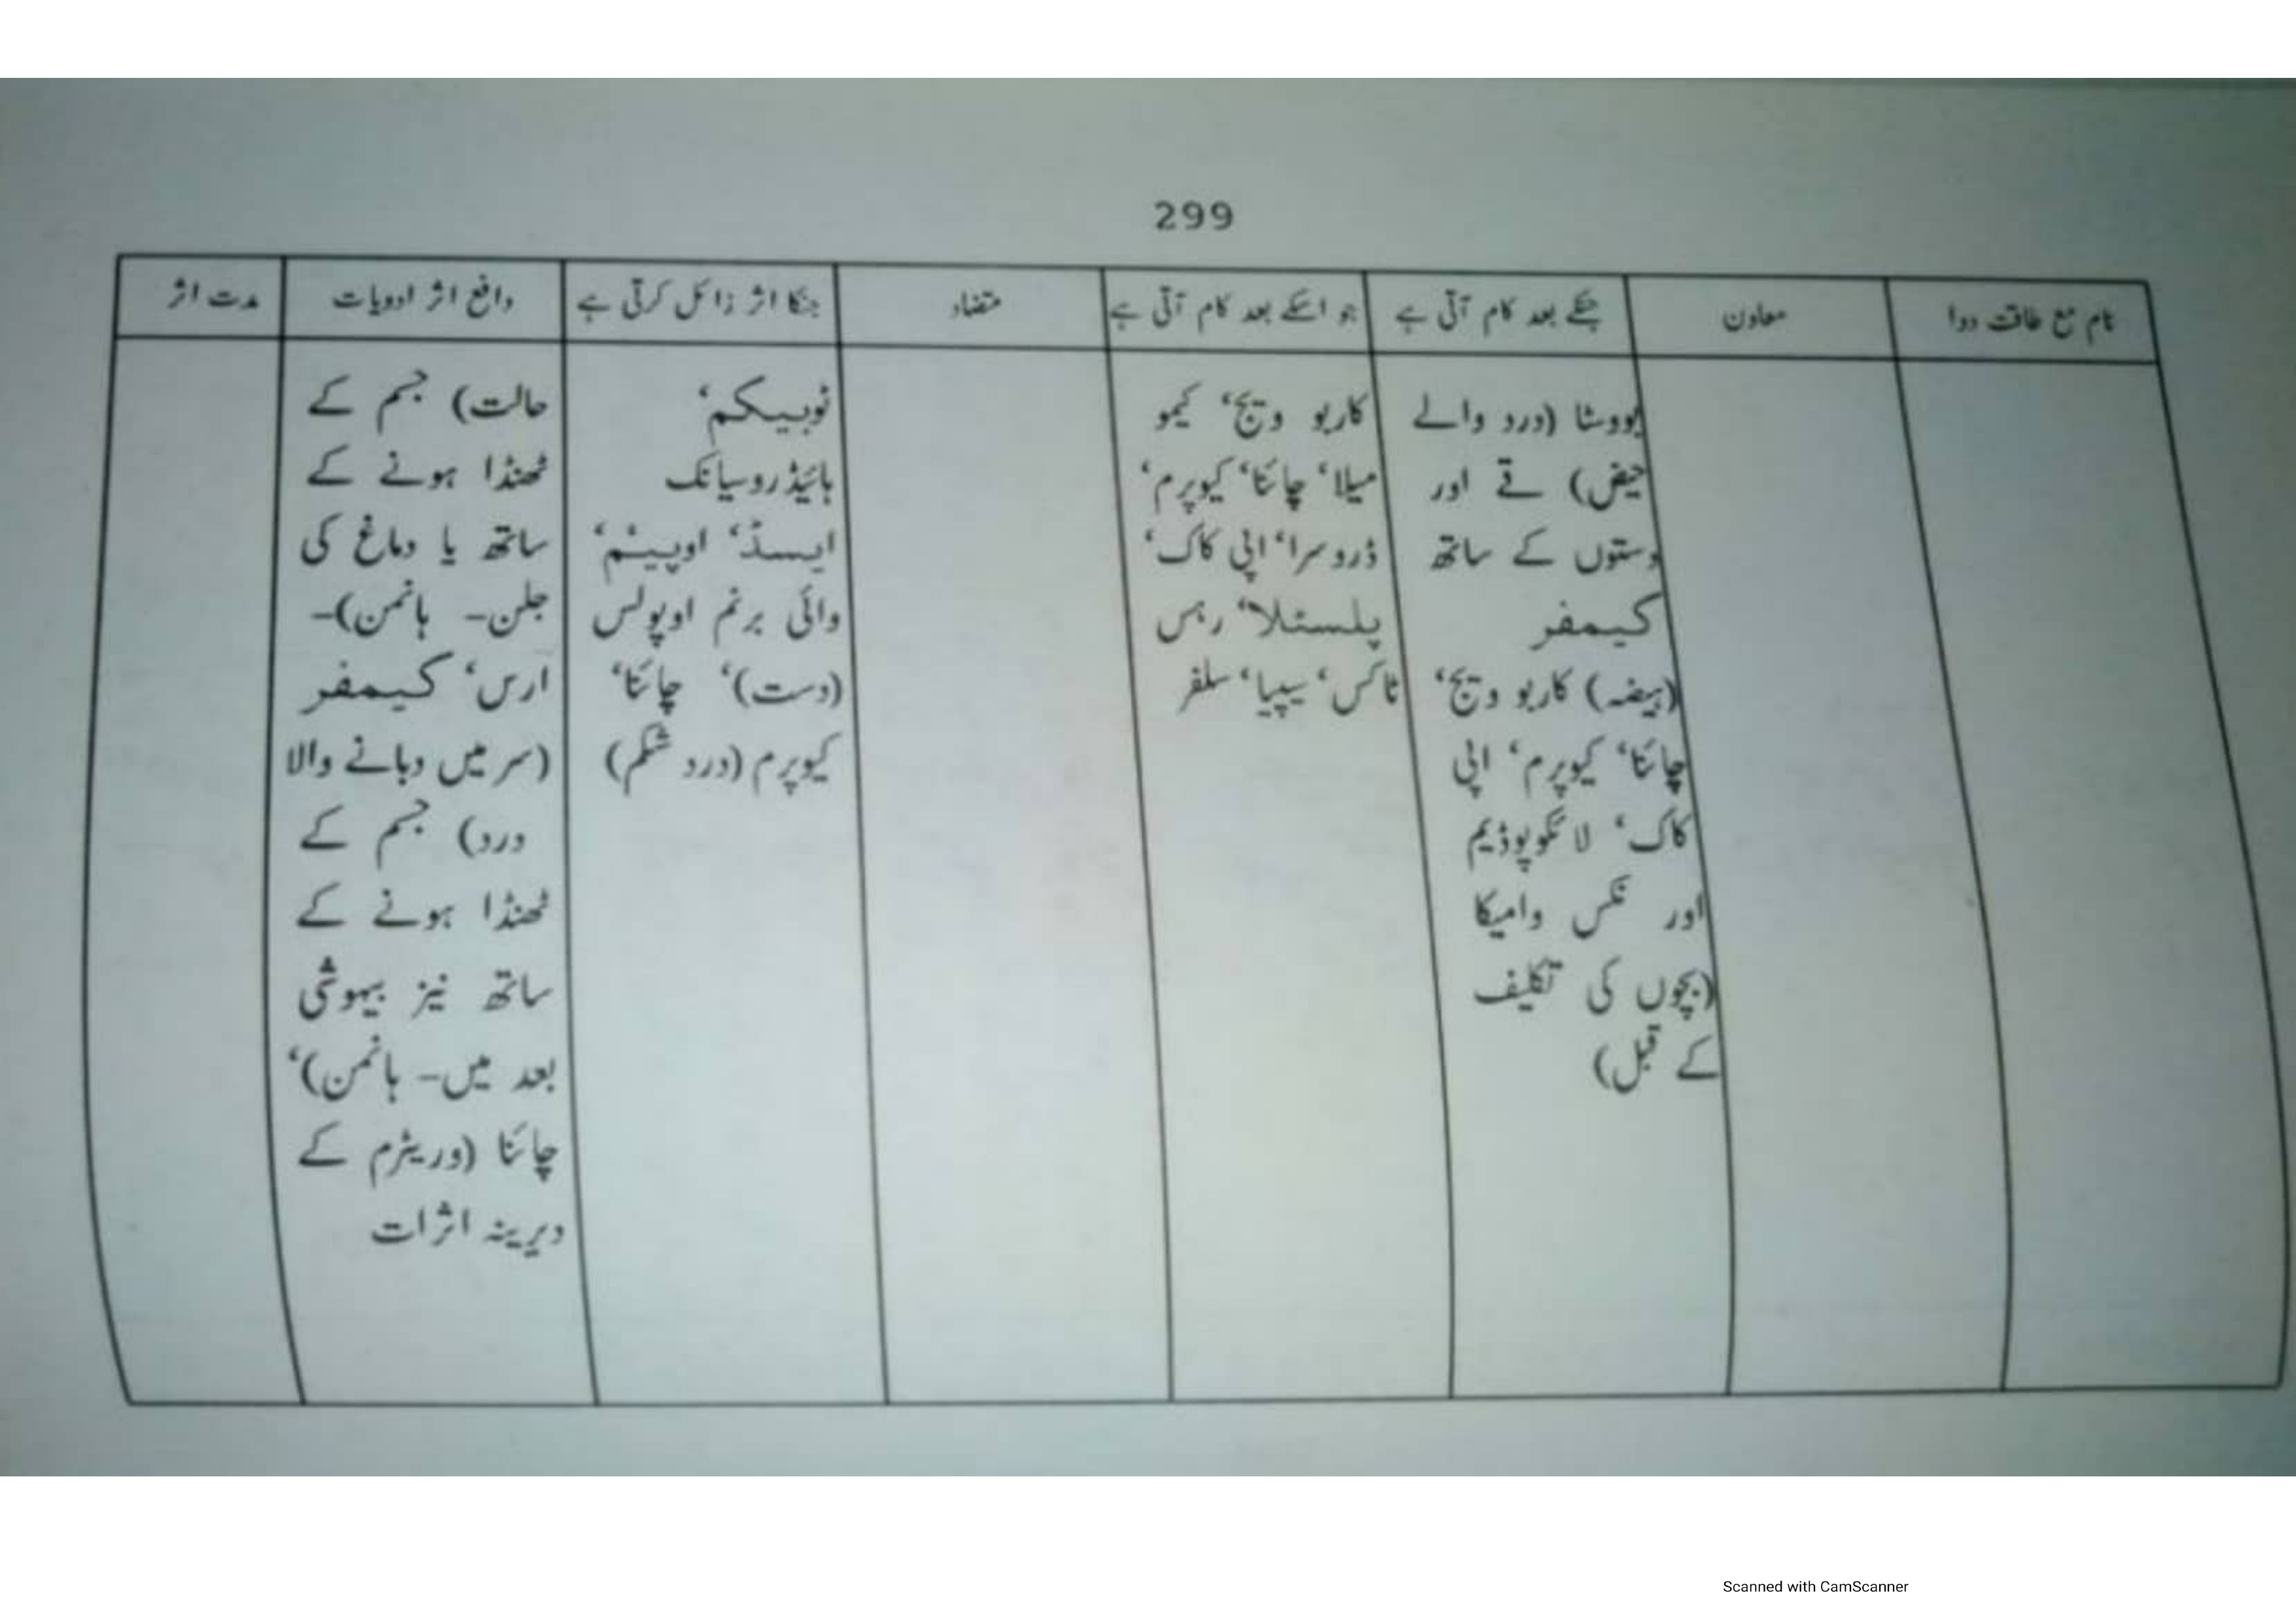 299
نام مع طاقت دوا
معاون
جسکے بعد کام آتی ہے
جو اسکے بعد کام آتی ہے
متضاد
جنکا اثر زائل کرتی ہے
دافع اثر ادویات
مدت اثر
بووسٹا (درد والے
حیض) قے اور
دستوں کے ساتھ
کیمفر
(ہیضہ) کاربو ویج،
چائنا، کیوپرم، اپی
کاک، لائکوپوڈیم
اور نکس وامیکا
(بچوں کی تکلیف
کے قبل)
کاربو ویج، کیمو
میلا، چائنا، کیوپرم،
ڈروسرا، اپی کاک،
پلسٹلا، رہس
ٹاکس، سیپیا، سلفر
ٹوبیکم،
ہائیڈروسیانک
ایسڈ، اوپیئم،
وائی برنم اوپولس
(دست)، چائنا،
کیوپرم (درد شکم)
حالت) جسم کے
ٹھنڈا ہونے کے
ساتھ یا دماغ کی
جلن۔ ہانمن)۔
ارس، کیمفر
(سر میں دبانے والا
درد) جسم کے
ٹھنڈا ہونے کے
ساتھ نیز بیہوشی
بعد میں۔ ہانمن)،
چائنا (وریٹرم کے
دیرینہ اثرات
Scanned with CamScanner